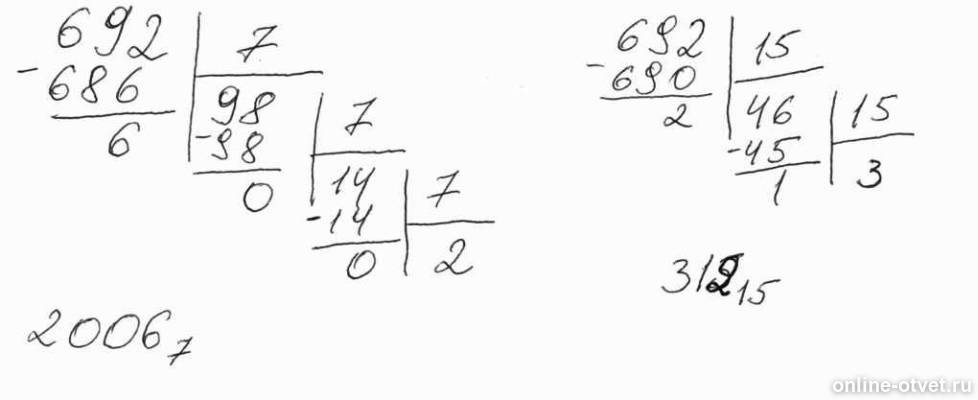 692 7
-686 98 7
6 -98 14 7
0 -14 2
0
2006₇
692 15
-690 46 15
2 -45 3
1
312₁₅
online-otvet.ru